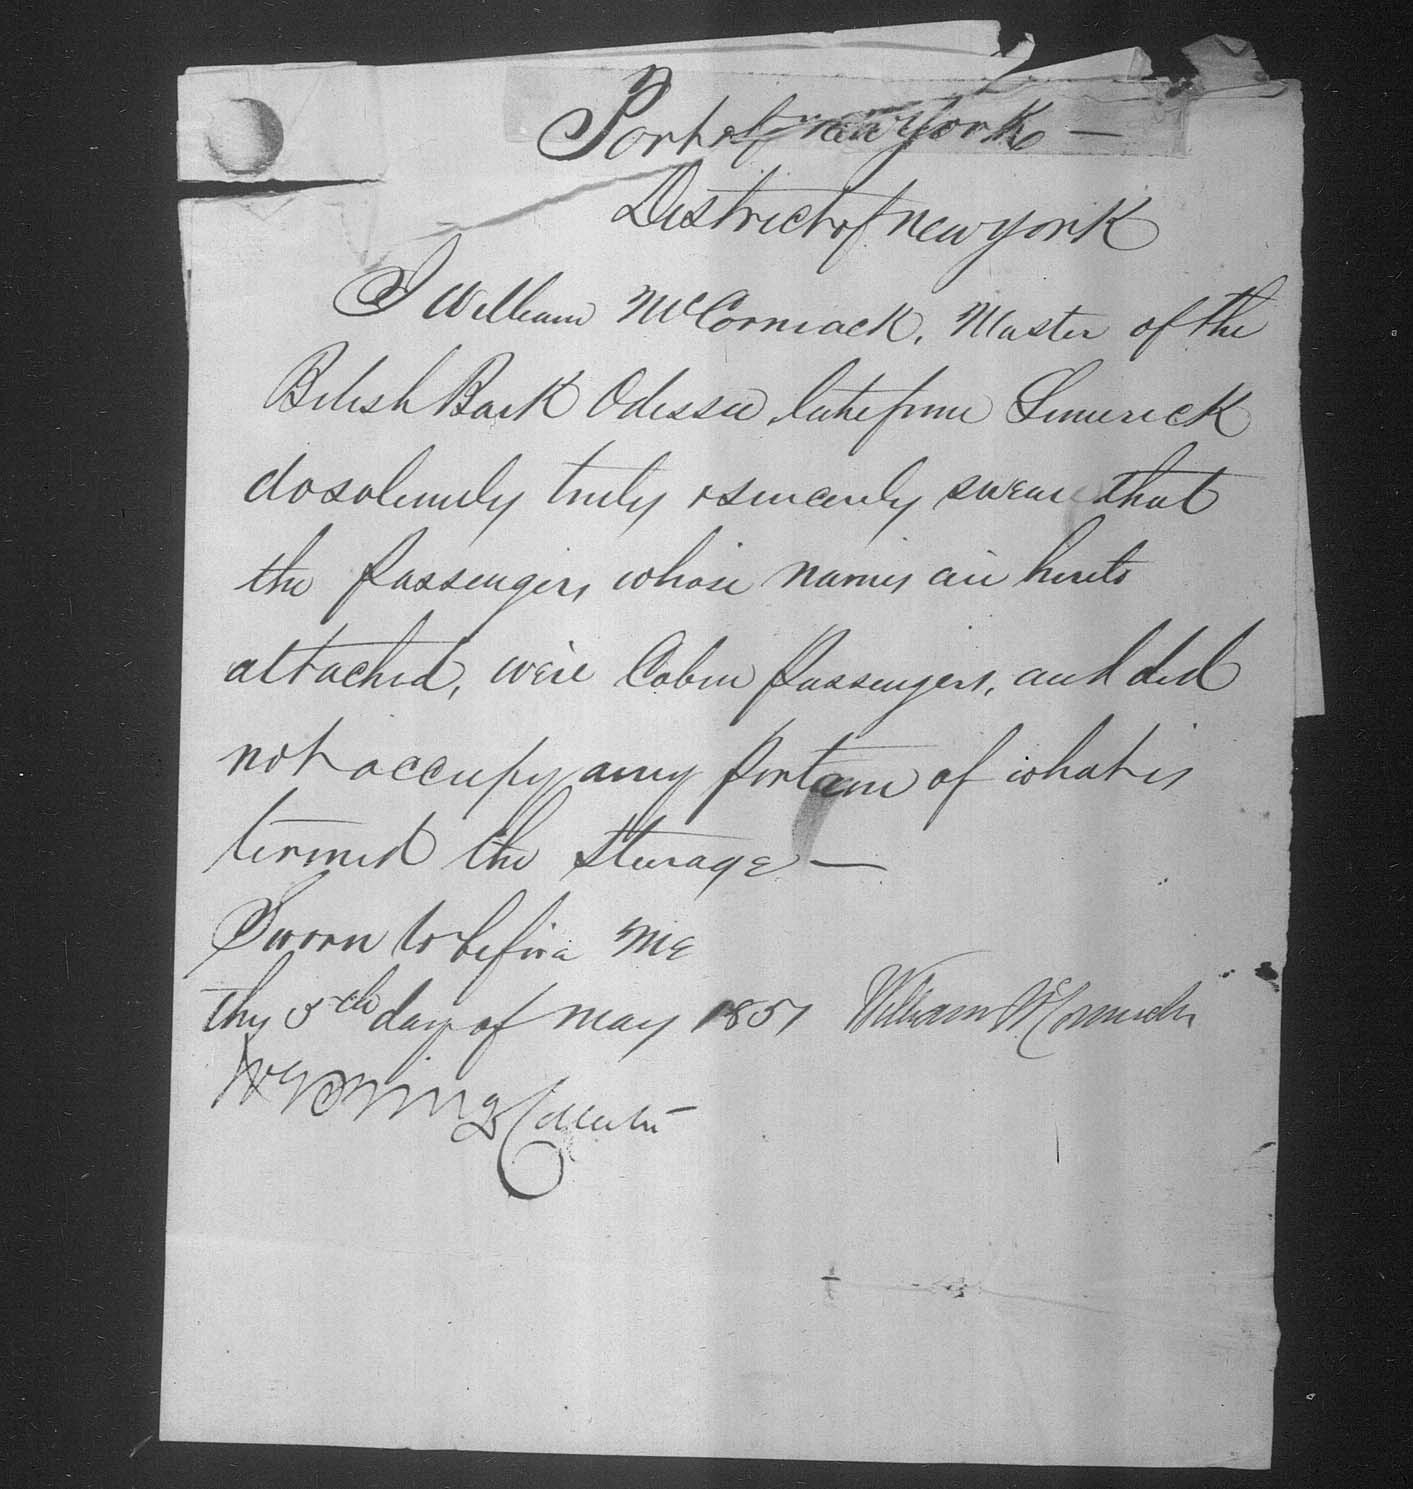 Port of New York —
District of New York
I William McCormack, Master of the
British Bark Odessa, late from Limerick
do solemnly truly & sincerely swear that
the passengers whose names are hereto
attached, were Cabin passengers, and did
not occupy any portion of what is
termed the Sterage —
Sworn to before Me
this 5th day of May 1851 William McCormack